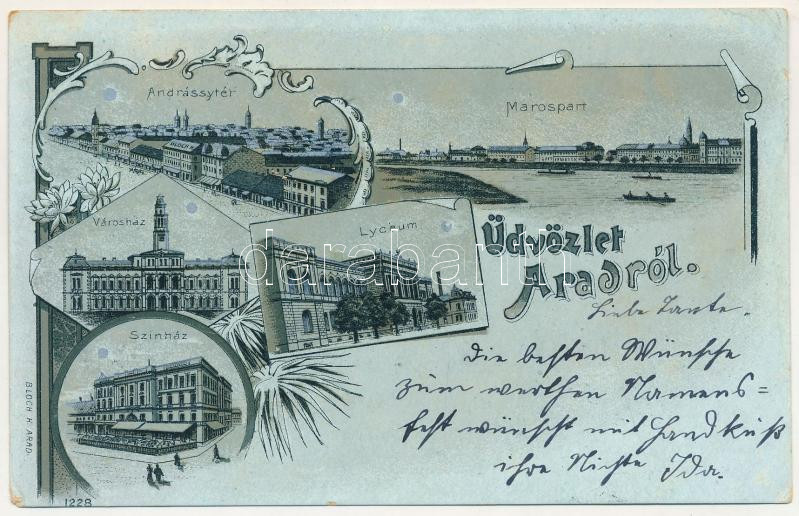 Andrássytér
Marospart
BLOCH H.
Városház
Lyceum
darabanth
Üdvözlet
Aradról.
Szinház
Liebe Tante.
Die besten Wünsche
zum werthen Namens=
fest wünscht mit Handkuß
ihre Nichte Ida.
BLOCH H. ARAD.
1228